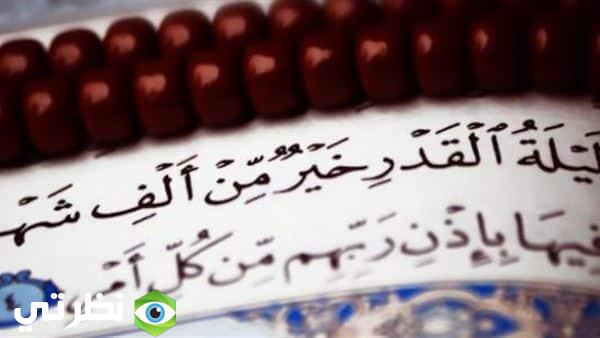 لَيْلَةُ ٱلْقَدْرِ خَيْرٌ مِّنْ أَلْفِ شَهْ
فِيهَا بِإِذْنِ رَبِّهِم مِّن كُلِّ أَمْرٍ
٤
نظرتي